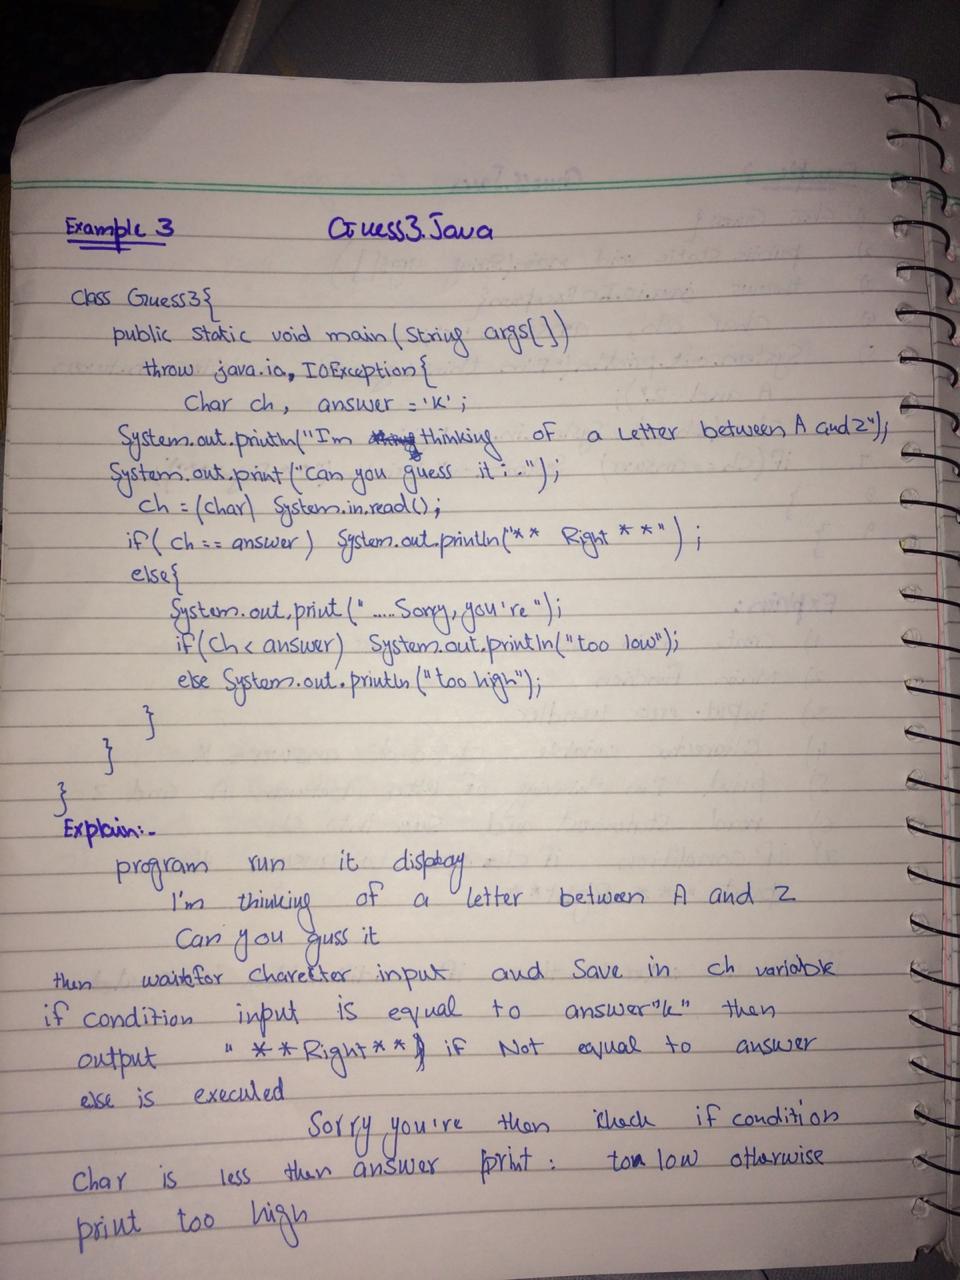 Example 3 Guess3.Java
class Guess3{
public static void main(String args[])
throw java.io, IOException{
Char ch, answer ='K';
System.out.println("I'm thinking of a Letter between A and Z");
System.out.print("Can you guess it :-");
ch = (char) System.in.read();
if( ch == answer) System.out.println("** Right **");
else{
System.out.print(" ....Sorry, you're");
if(Ch < answer) System.out.println("too low");
else System.out.println("too high");
}
}
}
Explain:-
program run it display
I'm thinking of a letter between A and Z
Can you guss it
then wait for charetter input and Save in ch variable
if condition input is equal to answer "k" then
output " **Right** if Not equal to answer
else is executed
Sorry you're then check if condition
Char is less then answer print : low otherwise
print too high